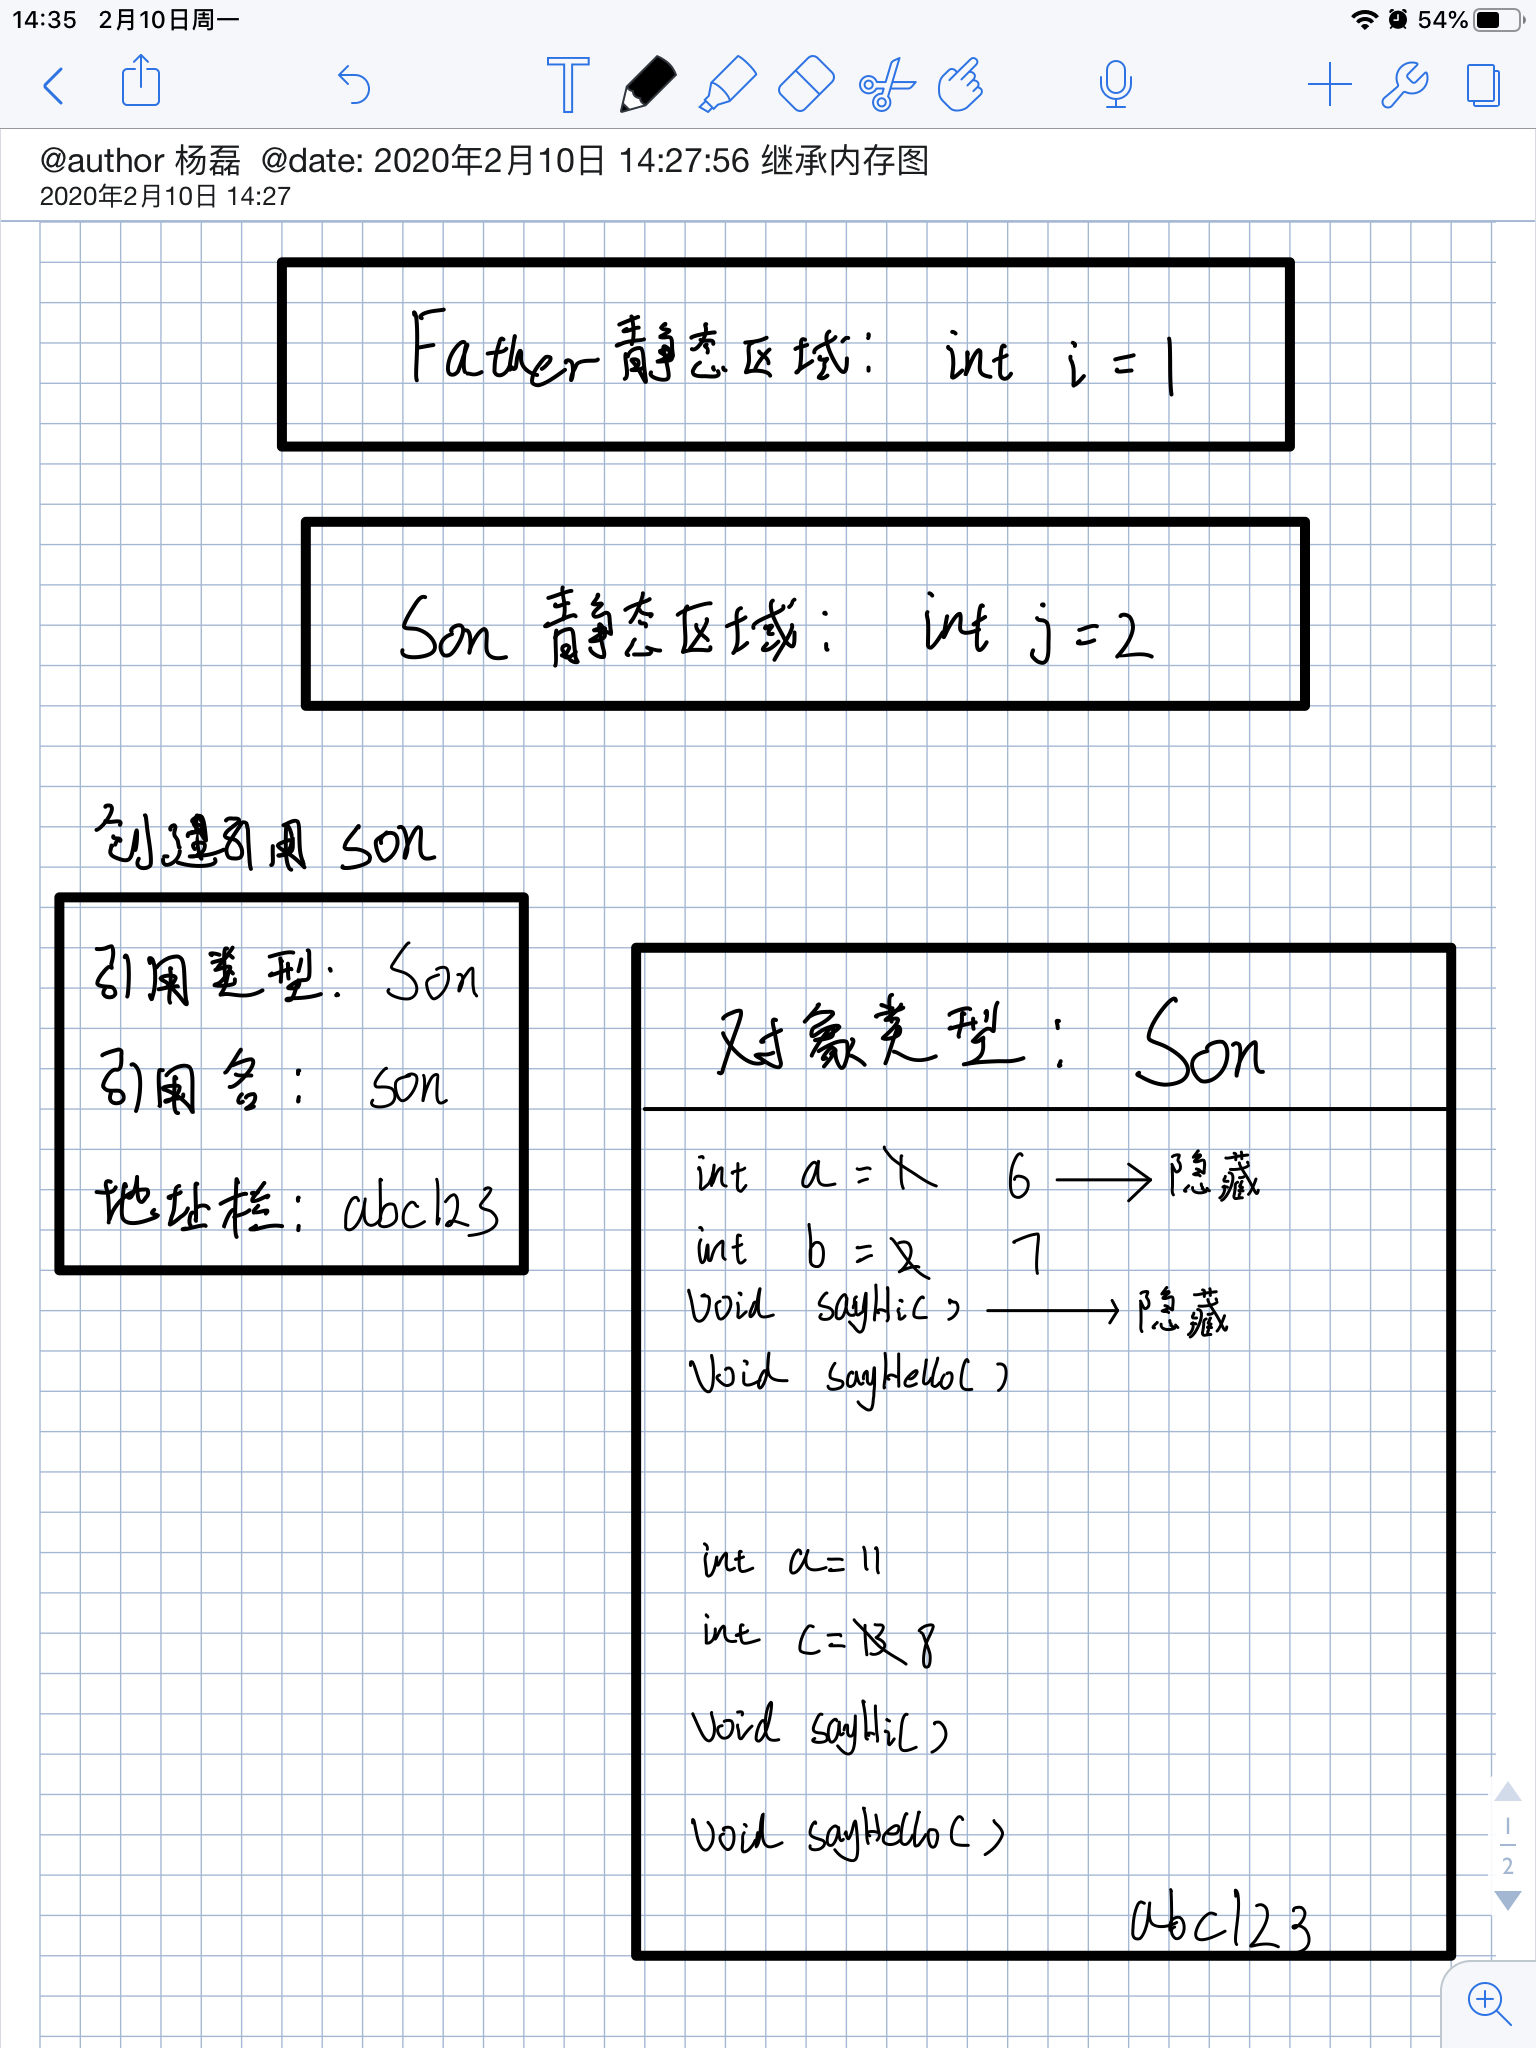 14:35 2月10日周一
54%
@author 杨磊 @date: 2020年2月10日 14:27:56 继承内存图
2020年2月10日 14:27
Father静态区域: int i = 1
Son 静态区域: int j = 2
创建引用 son
引用类型: Son
引用名: son
地址栏: abc123
对象类型: Son
int a = 1 6 → 隐藏
int b = 2 7
void sayHi() → 隐藏
void sayHello()
int a = 11
int c = 13 8
void sayHi()
void sayHello()
abc123
1
2